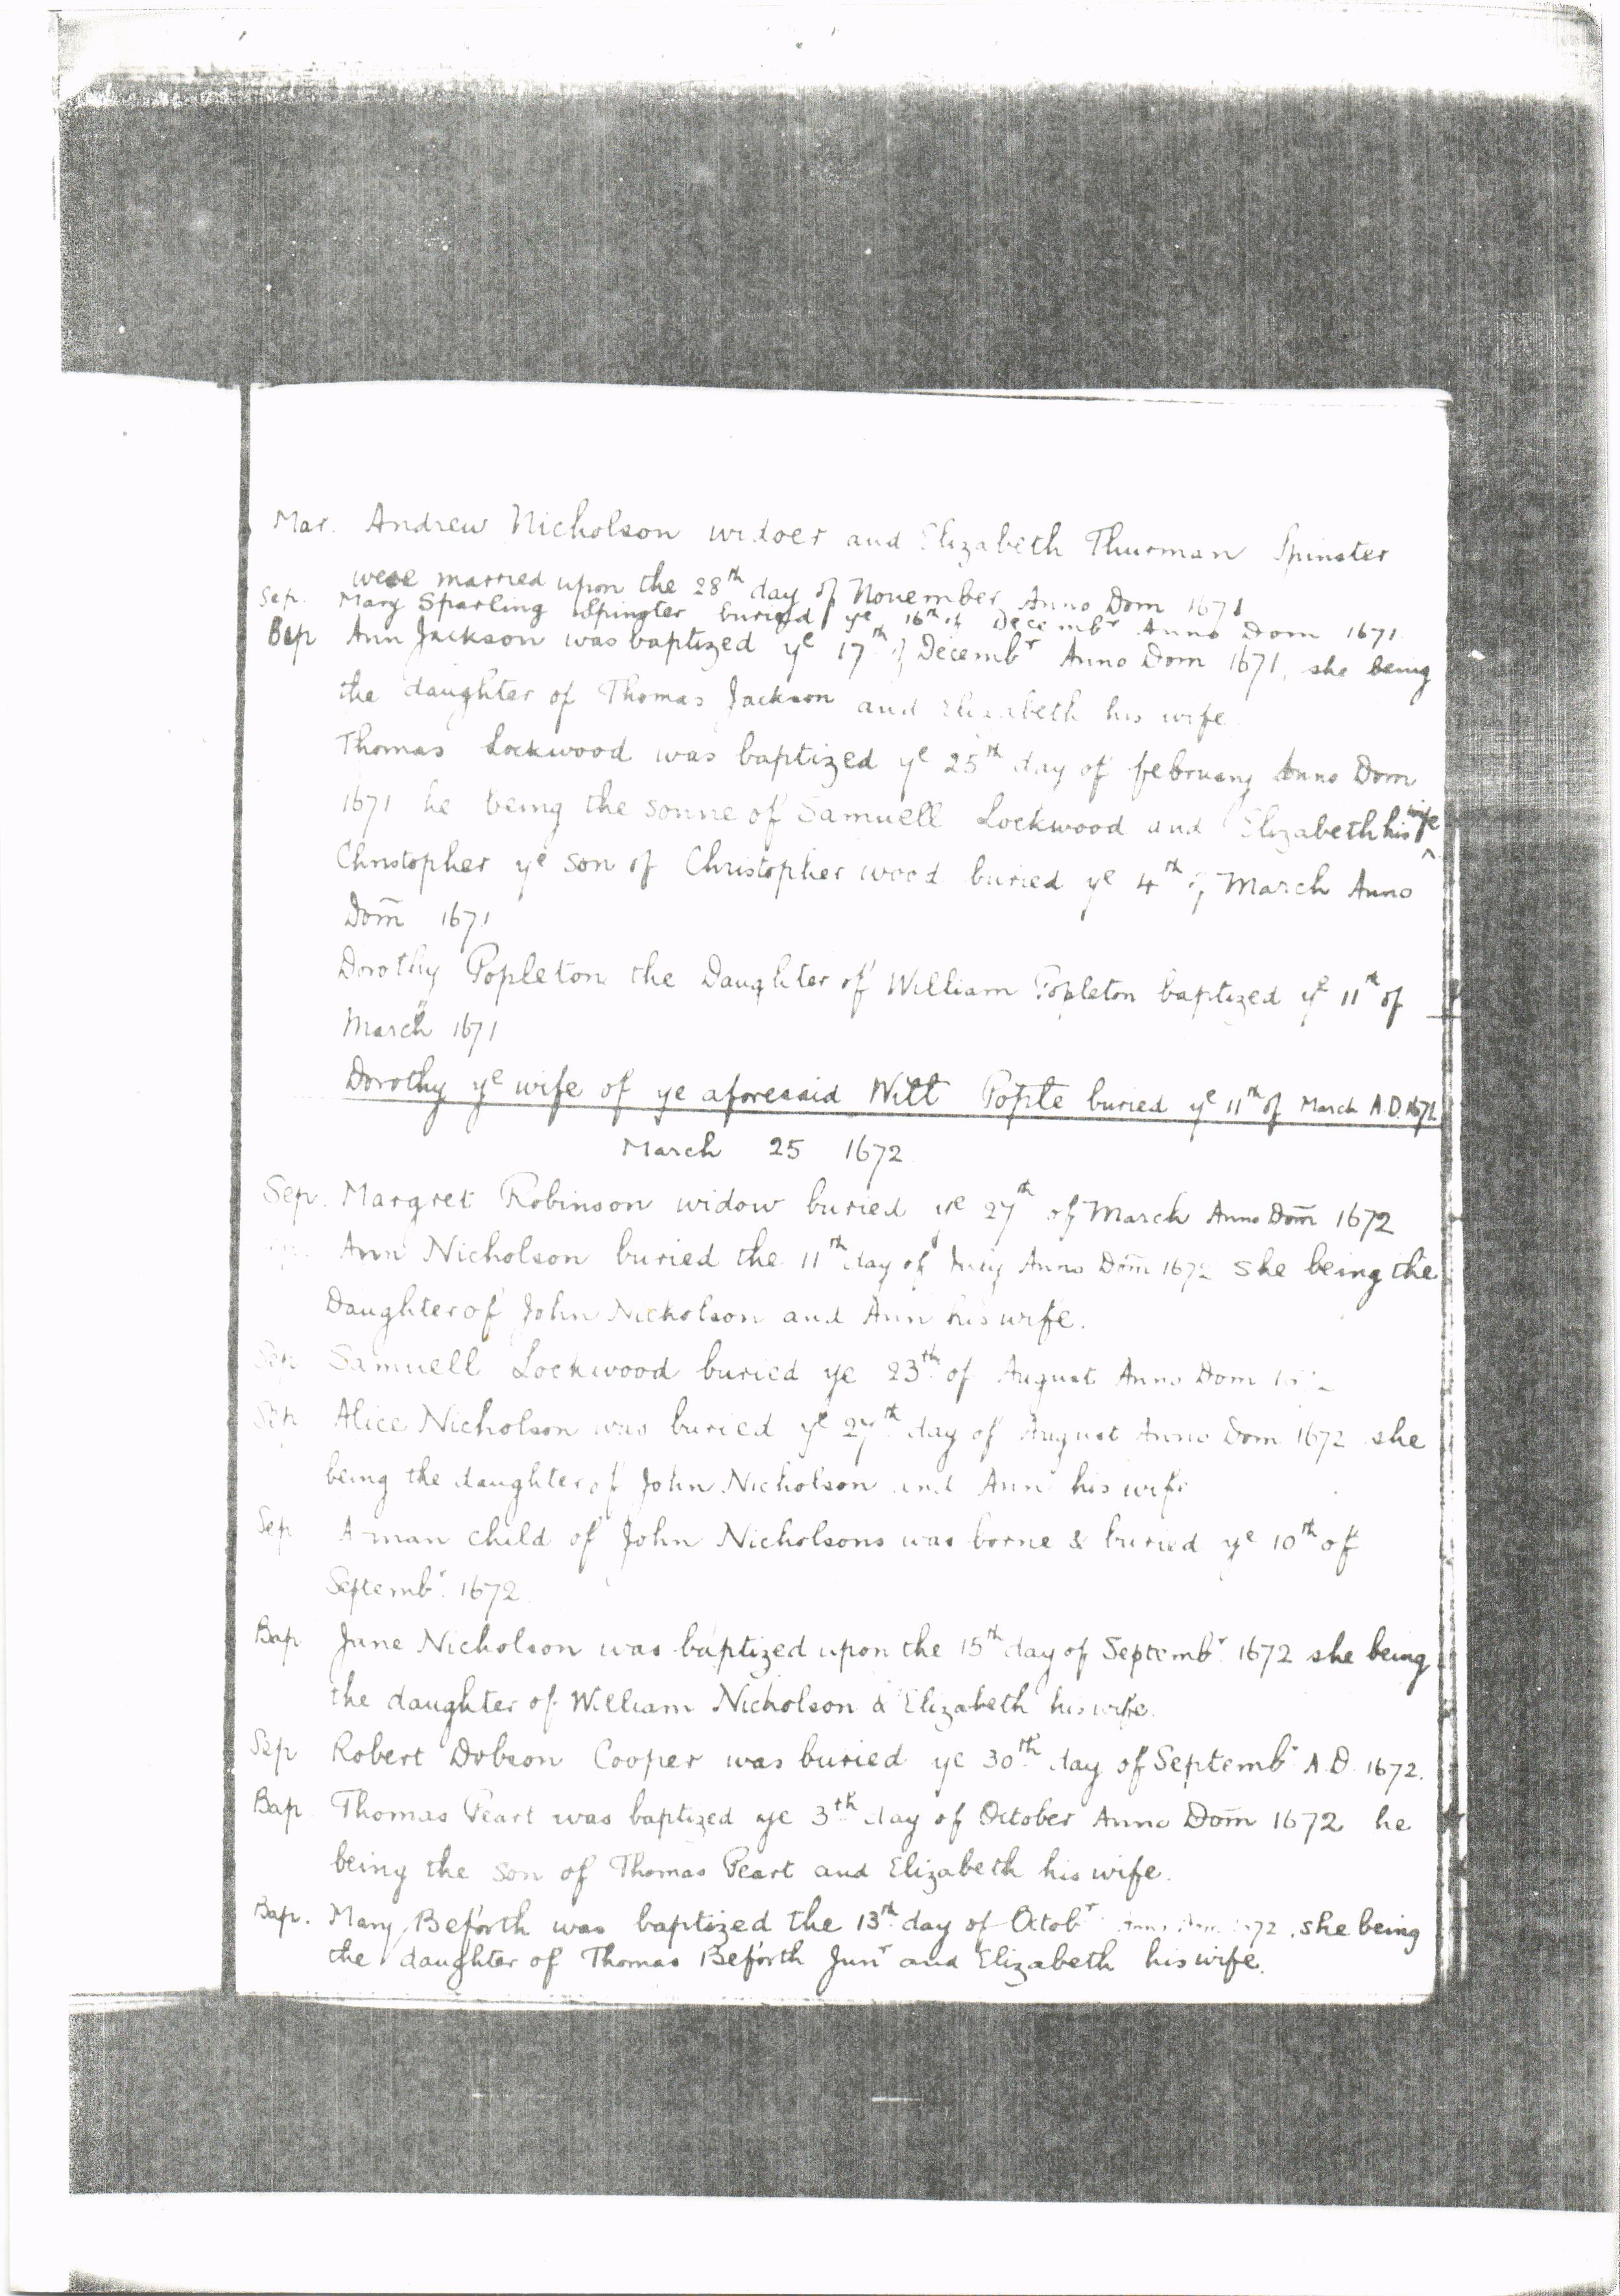 Mar. Andrew Nicholson widoer and Elizabeth Thurman Spinster
were married upon the 28th day of November Anno Dom 1671
Sep. Mary Sparling Spingter buried ye 16th of Decembr Anno Dom 1671
Bap Ann Jackson was baptized ye 17th of Decembr Anno Dom 1671, she being
the daughter of Thomas Jackson and Elizabeth his wife
Thomas Lockwood was baptized ye 25th day of february Anno Dom
1671 he being the sonne of Samuell Lockwood and Elizabeth his wife
Christopher ye son of Christopher wood buried ye 4th of March Anno
Dom̄ 1671
Dorothy Popleton the Daughter of William Popleton baptized ye 11th of
March 1671
Dorothy ye wife of ye aforesaid Will Pople buried ye 11th of March A.D. 1671
March 25 1672
Sep. Margret Robinson widow buried ye 27th of March Anno Dom̄ 1672
Ann Nicholson buried the 11th day of Anno Dom̄ 1672 she being the
Daughter of John Nicholson and Ann his wife.
Sep Samuell Lockwood buried ye 23th of August Anno Dom
Sep Alice Nicholson was buried ye 27th day of August Anno Dom 1672 she
being the daughter of John Nicholson and Ann his wife
Sep A man child of John Nicholsons was borne & buried ye 10th of
Septembr 1672
Bap Jane Nicholson was baptized upon the 15th day of Septembr 1672 she being
the daughter of William Nicholson & Elizabeth his wife.
Sep Robert Dobson Cooper was buried ye 30th day of Septembr A.D. 1672.
Bap Thomas Peart was baptized ye 3th day of October Anno Dom̄ 1672 he
being the son of Thomas Peart and Elizabeth his wife.
Bap. Mary Beforth was baptized the 13th day of Octobr Anno Dom 1672, she being
the daughter of Thomas Beforth Junr and Elizabeth his wife.